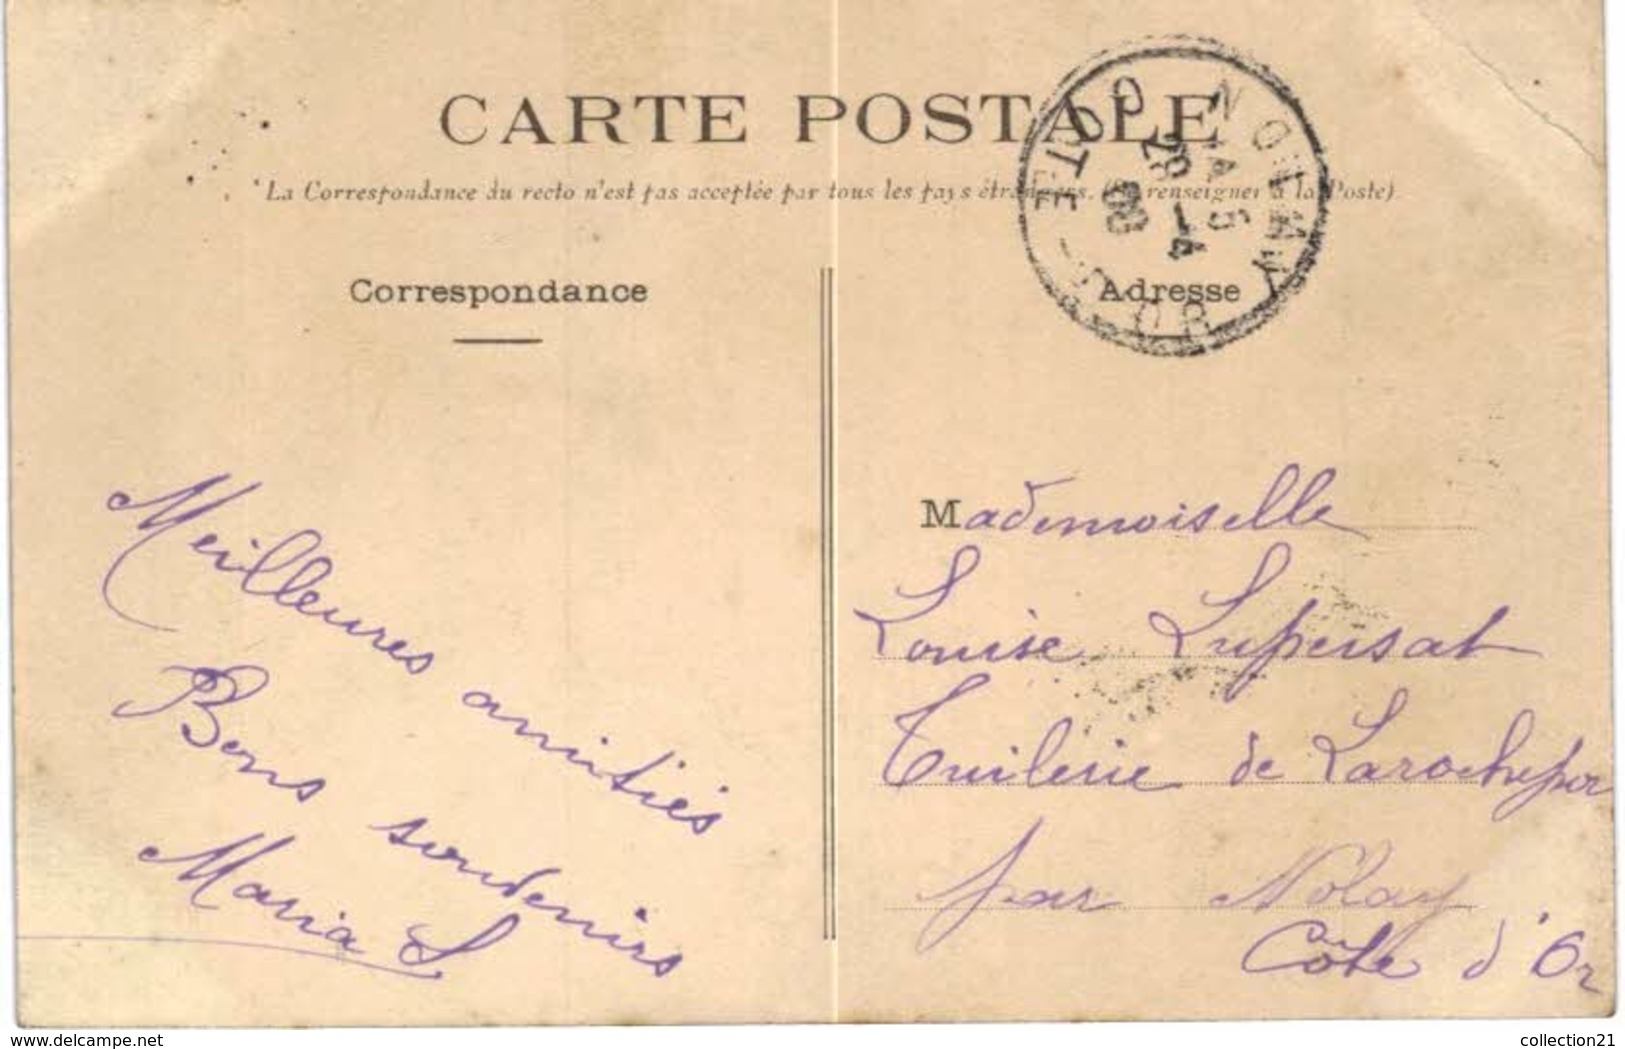 CARTE POSTALE
La Correspondance du recto n'est pas acceptée par tous les pays étrangers. (Se renseigner à la Poste)
Correspondance
Meilleures amitiés
Bons souvenirs
Maria L
Adresse
Mademoiselle
Louise Lupersat
Tuilerie de Larochepot
par Nolay
Côte d'Or
CÔTE-D'OR
28 - 4
08
delcampe.net
collection21